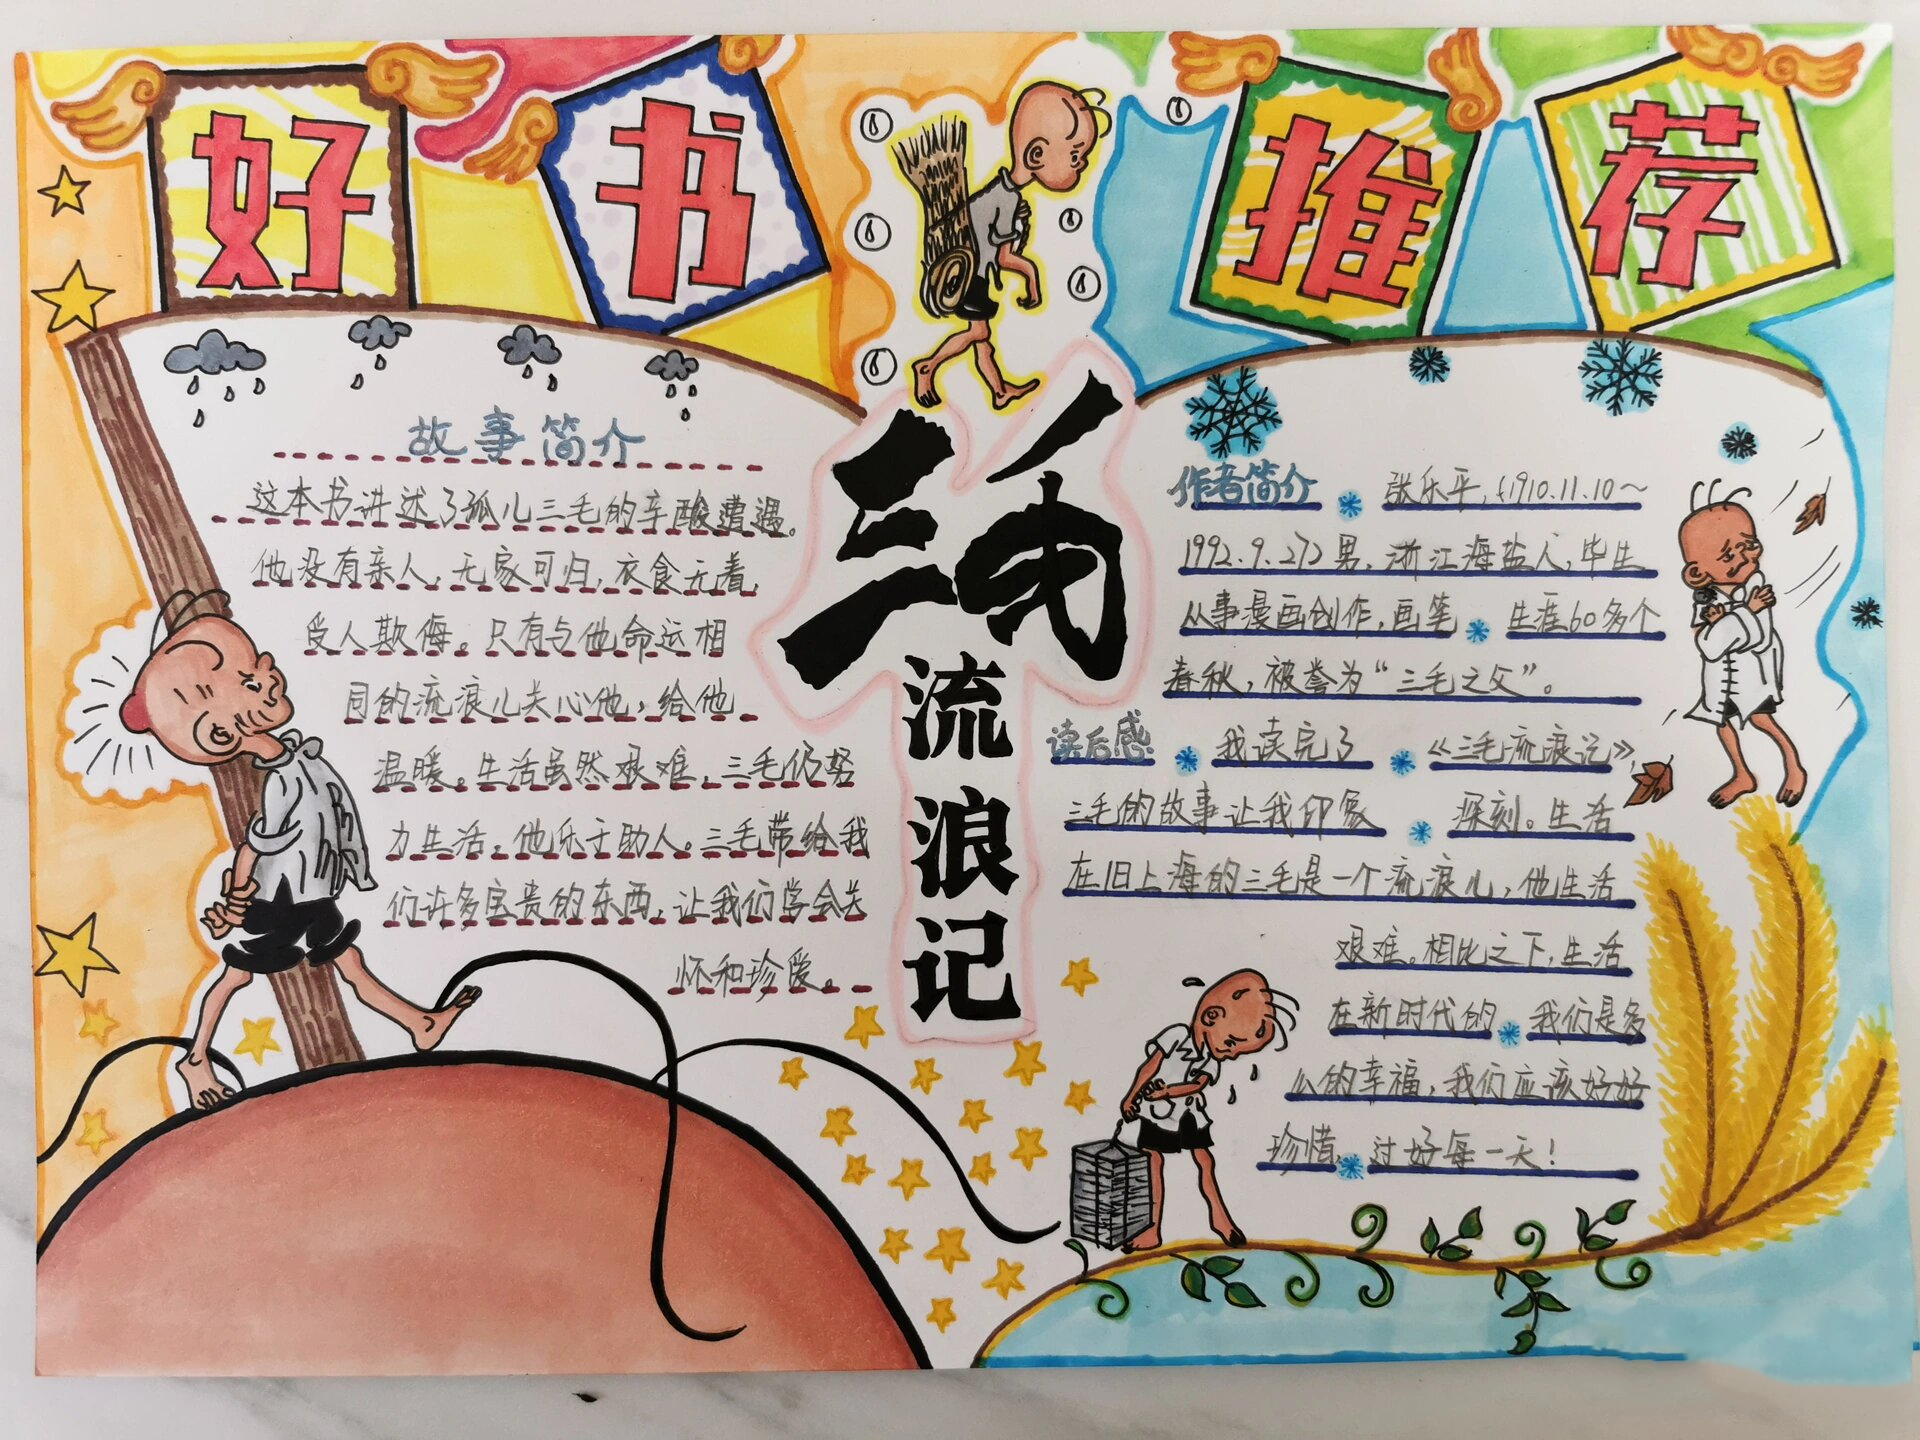 好书推荐
三毛
流浪记
故事简介
这本书讲述了孤儿三毛的辛酸遭遇。
他没有亲人,无家可归,衣食无着,
受人欺侮。只有与他命运相
同的流浪儿关心他,给他
温暖。生活虽然艰难,三毛仍努
力生活,他乐于助人。三毛带给我
们许多宝贵的东西,让我们学会关
怀和珍爱。
作者简介 张乐平,(1910.11.10~
1992.9.27)男,浙江海盐人,毕生
从事漫画创作,画笔生涯60多个
春秋,被誉为“三毛之父”。
读后感 我读完了《三毛流浪记》,
三毛的故事让我印象深刻。生活
在旧上海的三毛是一个流浪儿,他生活
艰难。相比之下,生活
在新时代的我们是多
么的幸福,我们应该好好
珍惜,过好每一天!